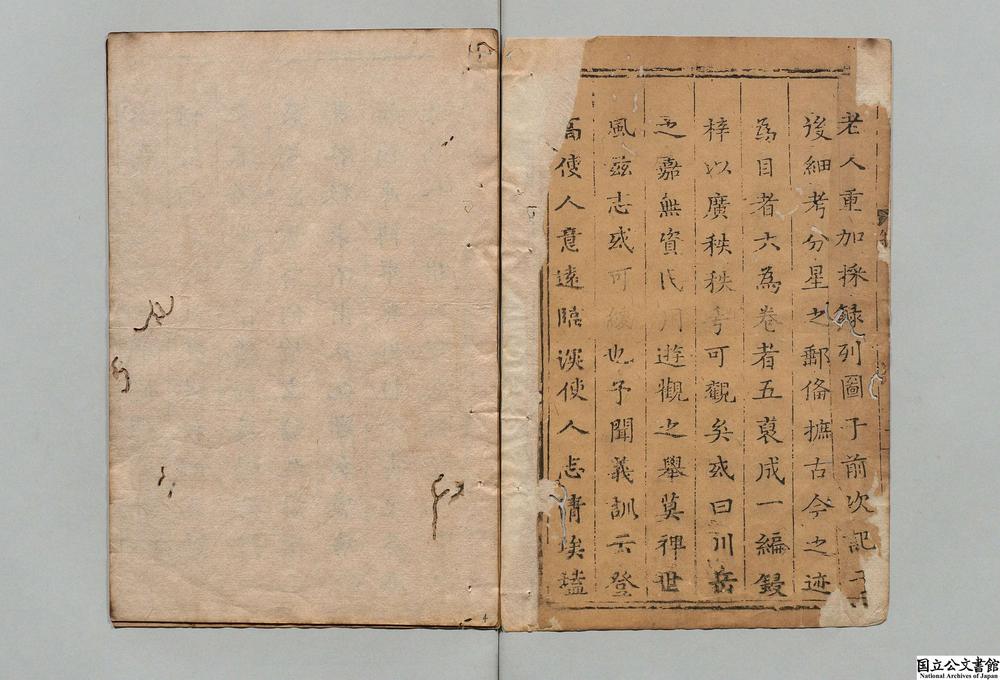 老人重加採錄列圖于前次記于
後細考分星之郵俻摭古今之迹
為目者六為卷者五裒成一編鋟
梓以廣秩秩乎可觀矣或曰川岳
之嘉無資氏用遊觀之舉莫裨世
風茲志或可緩也予聞義訓云登
高使人意遠臨淡使人志清埃𡏖
国立公文書館
National Archives of Japan